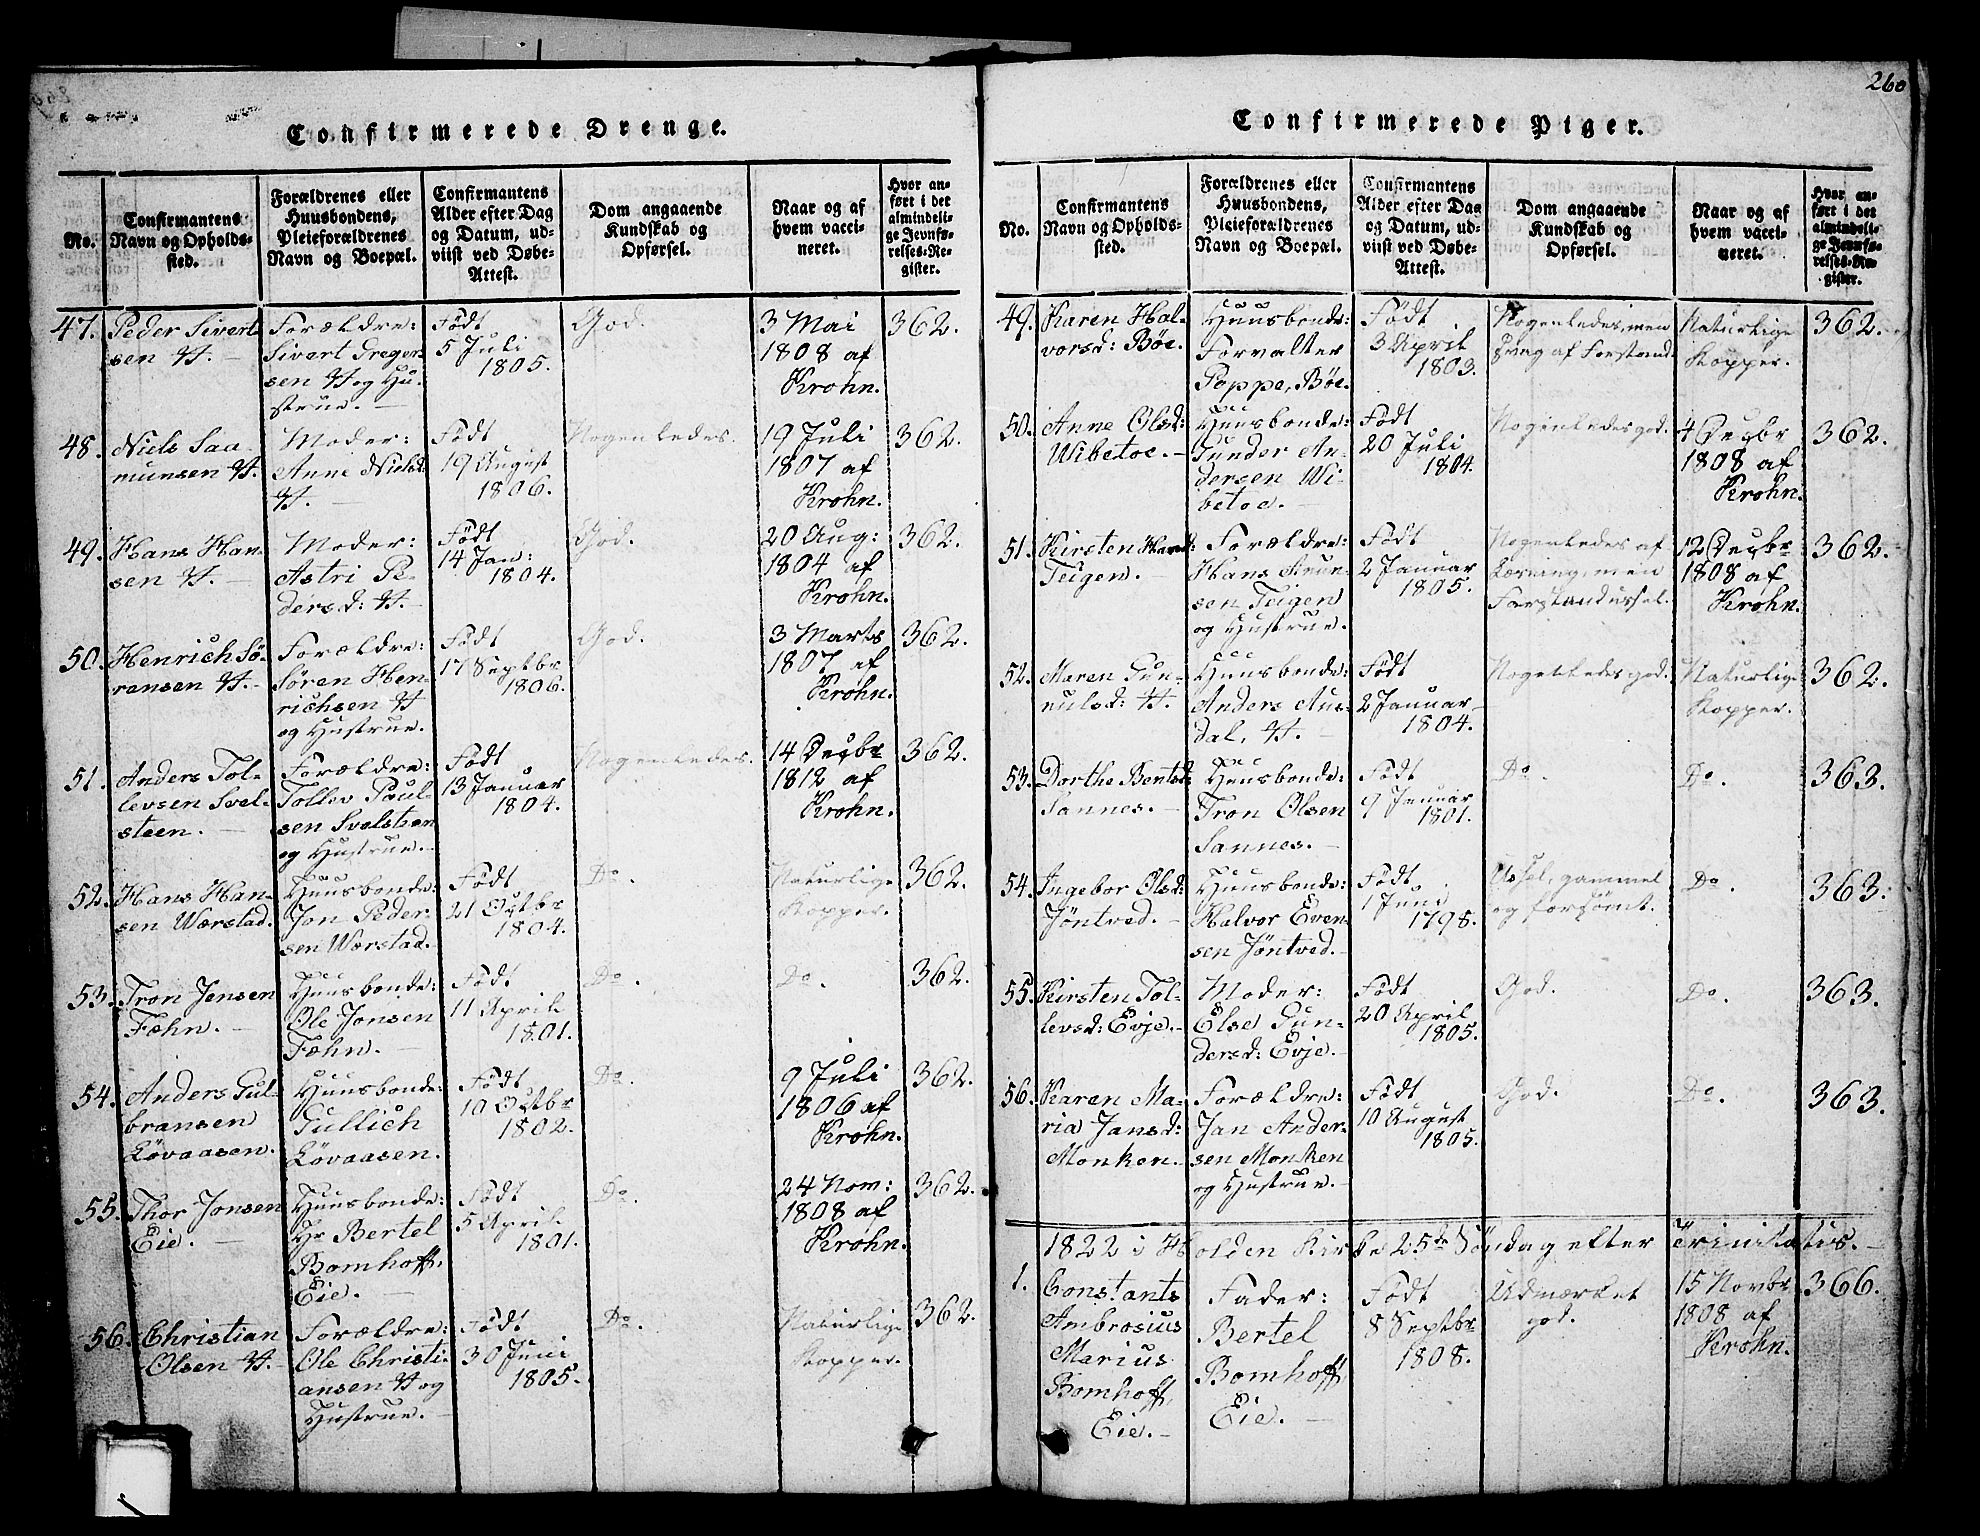 260
Confirmerede Drenge.
No.
Confirmantens
Navn og Opholds-
sted.
Forældrenes eller
Huusbondens,
Pleieforældrenes
Navn og Boepæl.
Confirmantens
Alder efter Dag
og Datum, ud-
viist ved Døbe-
Attest.
Dom angaaende
Kundskab og
Opførsel.
Naar og af
hvem vacci-
neret.
Hvor an-
ført i det
almindeli-
ge Jevnfø-
relses-Re-
gister.
47.
Peder Sivert-
sen
Forældre:
Sivert Greger-
sen og Hu-
strue.
Født
5 Juli
1805.
God.
3 Mai
1808 af
Krohn.
362.
48.
Niels Saa-
munsen
Moder:
Anne Nielsd:
Født
19 August
1806.
Nogenledes.
19 Juli
1807 af
Krohn.
362.
49.
Hans Han-
sen
Moder:
Astri Pe-
dersd:
Født
14 Jan:
1804.
God.
20 Aug:
1804 af
Krohn.
362.
50.
Henrich Sö-
rensen
Forældre:
Sören Hen-
richsen
og Hustrue.
Født
17 Septbr
1806.
God.
3 Marts
1807 af
Krohn.
362.
51.
Anders Tol-
levsen Svel-
steen.
Forældre:
Tollev Paul-
sen Svelsteen
og Hustrue.
Født
13 Januar
1804.
Nogenledes.
14 Decbr
1812 af
Krohn.
362.
52.
Hans Han-
sen Wærstad.
Huusbonde:
Jon Peder-
sen Wærstad.
Født
21 Octbr
1804.
Do.
Naturlige
Kopper.
362.
53.
Tron Jensen
Fæhn.
Huusbonde:
Ole Jonsen
Fæhn.
Født
11 April
1801.
Do.
Do.
362.
54.
Anders Gul-
bransen
Lövaasen.
Huusbonde:
Gullich
Lövaasen.
Født
10 Octbr
1802.
Do.
9 Juli
1806 af
Krohn.
362.
55.
Thor Jonsen
Eie.
Huusbonde:
Hr Bertel
Bomhoff,
Eie.
Født
5 April
1801.
Do.
24 Nov:
1808 af
Krohn.
362.
56.
Christian
Olsen
Forældre:
Ole Christi-
ansen og
Hustrue.
Født
30 Juni
1805.
Do.
Naturlige
Kopper.
362.
Confirmerede Piger.
No.
Confirmantens
Navn og Opholds-
sted.
Forældrenes eller
Huusbondens,
Pleieforældrenes
Navn og Boepæl.
Confirmantens
Alder efter Dag
og Datum, ud-
viist ved Døbe-
Attest.
Dom angaaende
Kundskab og
Opførsel.
Naar og af
hvem vacci-
neret.
Hvor an-
ført i det
almindeli-
ge Jevnfø-
relses-Re-
gister.
49.
Karen Hal-
vorsd: Böe.
Huusbonde:
Forvalter
Poppe, Böe.
Født
3 April
1803.
Nogenledes, men
svag af Forstand.
Naturlige
Kopper.
362.
50.
Anne Olsd:
Wibetoe.
Huusbonde:
Gunder An-
dersen Wi-
betoe.
Født
20 Juli
1804.
Nogenledes god.
4 Decbr
1808 af
Krohn.
362.
51.
Kirsten Hansd:
Teigen.
Forældre:
Hans
sen Teigen
og Hustrue.
Født
2 Januar
1805.
Nogenledes af
Læsning, men
Forstand ussel.
12 Decbr
1808 af
Krohn.
362.
52.
Maren Gun-
nulsd:
Huusbonde:
Anders Aus-
dal,
Født
2 Januar
1804.
Nogenledes god.
Naturlige
Kopper.
362.
53.
Dorthe Bentsd:
Sannes.
Huusbonde:
Tron Olsen
Sannes.
Født
9 Januar
1801.
Do.
Do.
363.
54.
Ingebor Olsd:
Jöntved.
Huusbonde:
Halvor Even-
sen Jöntved.
Født
1 Juni
1798.
Ussel, gammel
og forsömt.
Do.
363.
55.
Kirsten Tol-
levsd: Evje.
Moder:
Else Gun-
dersd: Evje.
Født
20 April
1805.
God.
Do.
363.
56.
Karen Ma-
ria Jansd:
Monken.
Forældre:
Jan Ander-
sen Monken
og Hustrue.
Født
10 August
1805.
God.
Do.
363.
1822 i Holden Kirke 25de Søndag efter Trinitatis.
1.
Constants
Ambrosius
Marius
Bomhoff,
Eie.
Fader:
Bertel
Bomhoff,
Eie.
Født
8 Septbr
1808.
Udmærket
god.
15 Novbr
1808 af
Krohn.
366.